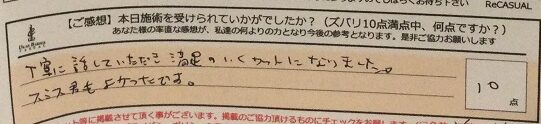 ReCASUAL
【ご感想】本日施術を受けられていかがでしたか？（ズバリ10点満点中、何点ですか？）
あなた様の率直な感想が、私達の何よりの力となり今後の参考となります。是非ご協力お願いします
丁寧に話していただき満足のいくカットになりました。
スミス君もよかったです。
10
点
ット等に掲載させて頂く事がございます。掲載のご協力頂けるものにチェックをお願いします